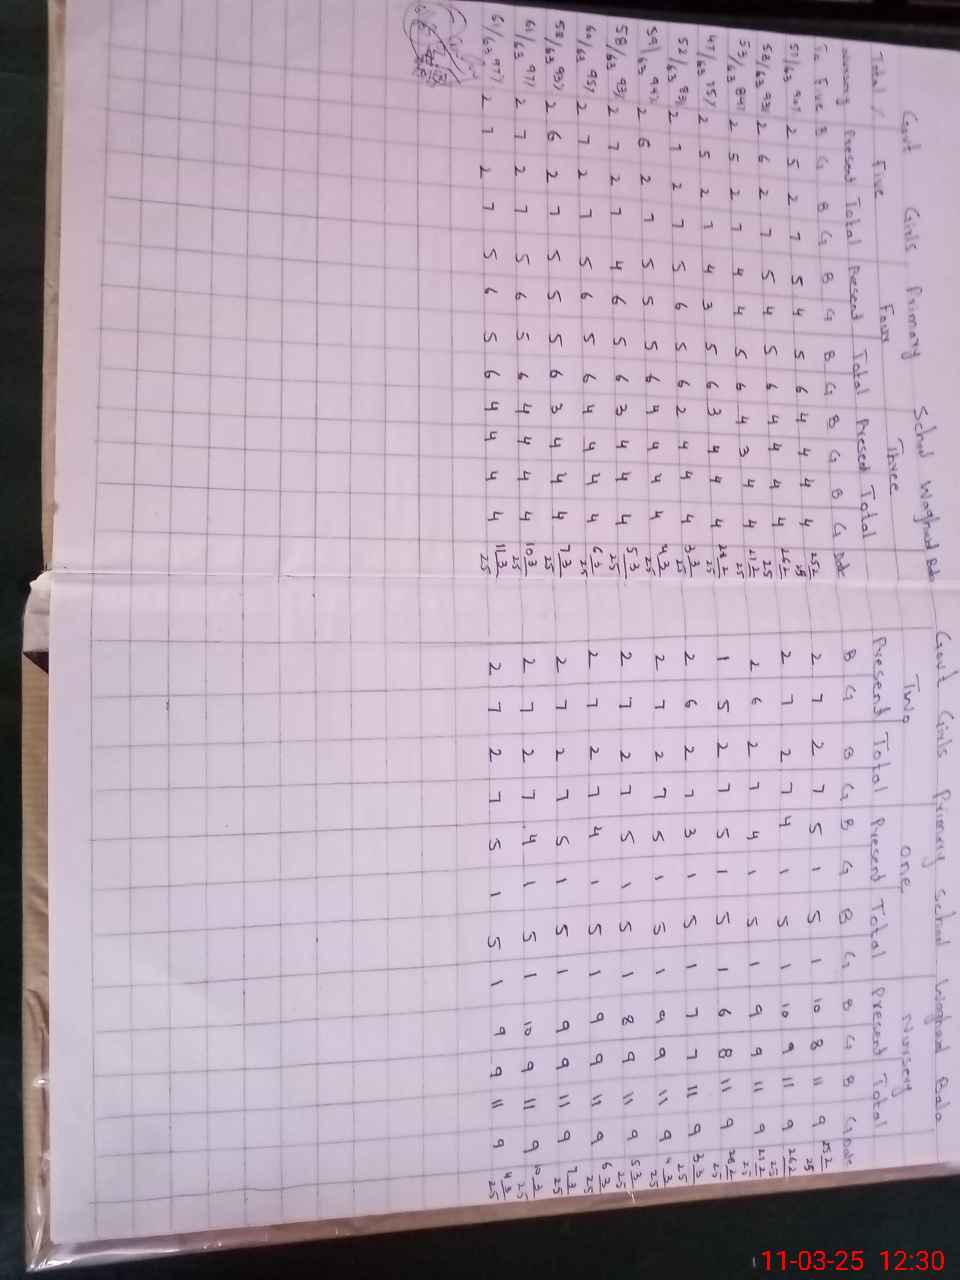 Govt Girls Primary School Waghad Bala
Total / Five Four Three
nursery Present Total Present Total Present Total
To Five B G B G B G B G B G B G Date
57/63 90% 2 5 2 7 5 4 5 6 4 4 4 4 25 2/25
58/63 93% 2 6 2 7 5 4 5 6 4 4 4 4 26 2/25
53/63 84% 2 5 2 7 4 4 5 6 4 3 4 4 27 2/25
47/63 75% 2 5 2 7 4 3 5 6 3 4 4 4 28 2/25
52/63 83% 2 7 2 7 5 6 5 6 2 4 4 4 3 3/25
59/63 94% 2 6 2 7 5 5 5 6 4 4 4 4 4 3/25
58/63 93% 2 7 2 7 4 6 5 6 3 4 4 4 5 3/25
60/63 95% 2 7 2 7 5 6 5 6 4 4 4 4 6 3/25
58/63 93% 2 6 2 7 5 5 5 6 3 4 4 4 7 3/25
61/63 97% 2 7 2 7 5 6 5 6 4 4 4 4 10 3/25
61/63 97% 2 7 2 7 5 6 5 6 4 4 4 4 11 3/25
Govt Girls Primary School Waghad Bala
Two One Nursery
Present Total Present Total Present Total
B G B G B G B G B G B G Date
2 7 2 7 5 1 5 1 10 8 11 9 25 2/25
2 7 2 7 4 1 5 1 10 9 11 9 26 2/25
2 6 2 7 4 1 5 1 9 9 11 9 27 2/25
1 5 2 7 5 1 5 1 6 8 11 9 28 2/25
2 6 2 7 3 1 5 1 7 7 11 9 3 3/25
2 7 2 7 5 1 5 1 9 9 11 9 4 3/25
2 7 2 7 5 1 5 1 8 9 11 9 5 3/25
2 7 2 7 4 1 5 1 9 9 11 9 6 3/25
2 7 2 7 5 1 5 1 9 9 11 9 7 3/25
2 7 2 7 4 1 5 1 10 9 11 9 10 3/25
2 7 2 7 5 1 5 1 9 9 11 9 3/25
11-03-25 12:30